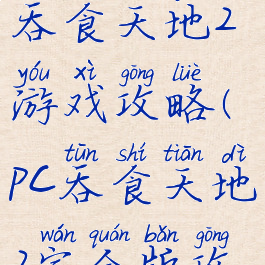 吞食天地2
yóu xì gōng lüè
游戏攻略(
tūn shí tiān dì
PC吞食天地
wán quán bǎn gōng
2完全版攻